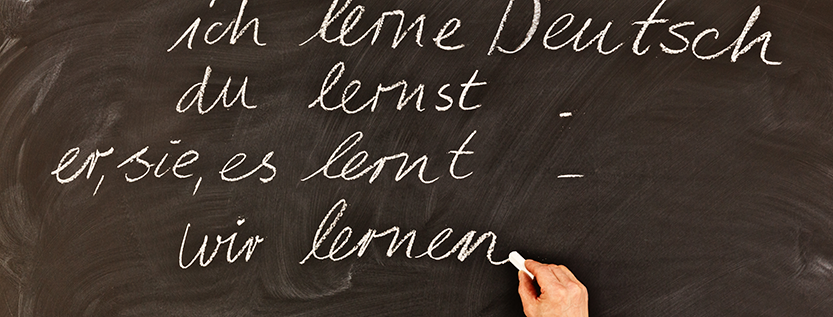 ich lerne Deutsch
du lernst -
er, sie, es lernt -
wir lernen